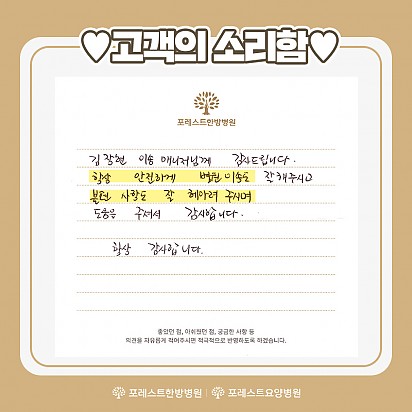 ♥고객의 소리함♥
포레스트한방병원
김장현 이송 매니저님께 감사드립니다.
항상 안전하게 병원이송도 잘해주시고
불편 사항도 잘 헤아려 주시며
도움을 주셔서 감사합니다.
항상 감사합니다.
좋았던 점, 아쉬웠던 점, 궁금한 사항 등
의견을 자유롭게 적어주시면 적극적으로 반영하도록 하겠습니다.
포레스트한방병원 | 포레스트요양병원